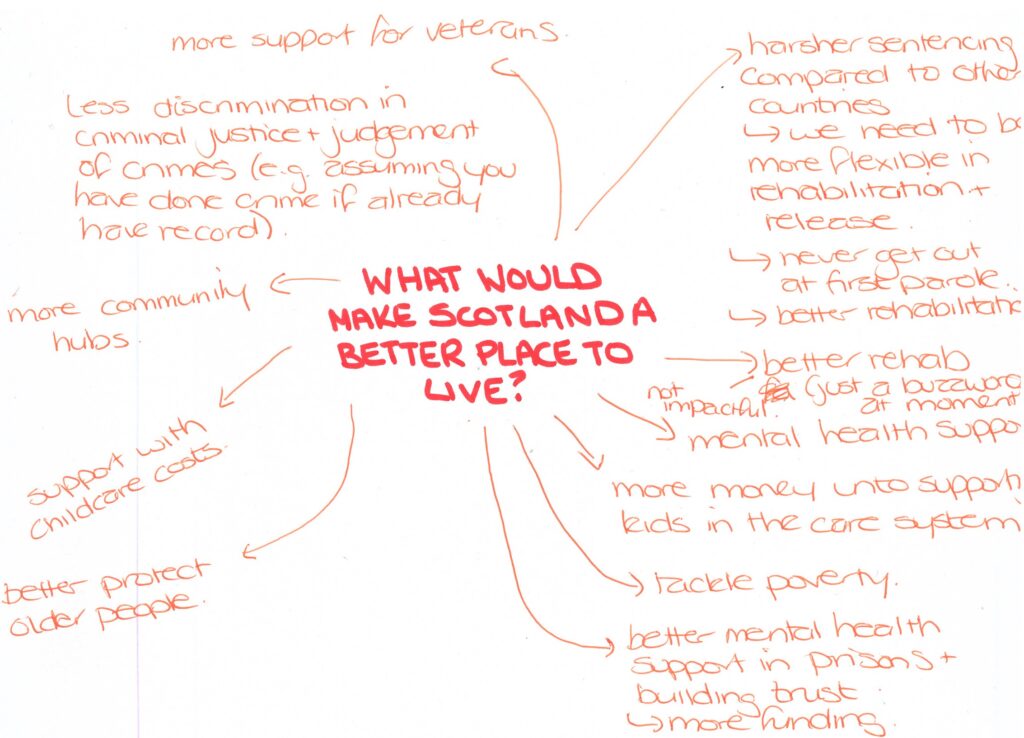 more support for veterans.
Less discrimination in
criminal justice + judgement
of crimes (e.g. assuming you
have done crime if already
have record).
more community
hubs.
support with
childcare costs.
better protect
older people.
WHAT WOULD
MAKE SCOTLAND A
BETTER PLACE TO
LIVE?
harsher sentencing
compared to othe
countries
↳ we need to be
more flexible in
rehabilitation +
release.
↳ never get out
at first parole.
↳ better rehabilitatio
better rehab
(just a buzzword
at moment
not
impactful.
mental health suppo
more money unto support
kids in the care system
tackle poverty.
better mental health
support in prisons +
building trust
↳ more funding.